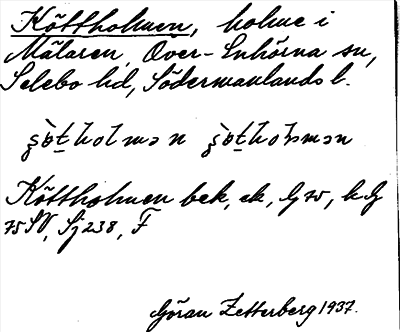 Köttholmen, holme i
Mälaren, Över-Enhörna sn,
Selebo hd, Södermanlands l.
Köttholmen bek, ek, G 75, k G
75 SV, Sj 238, F
Göran Zetterberg 1937.